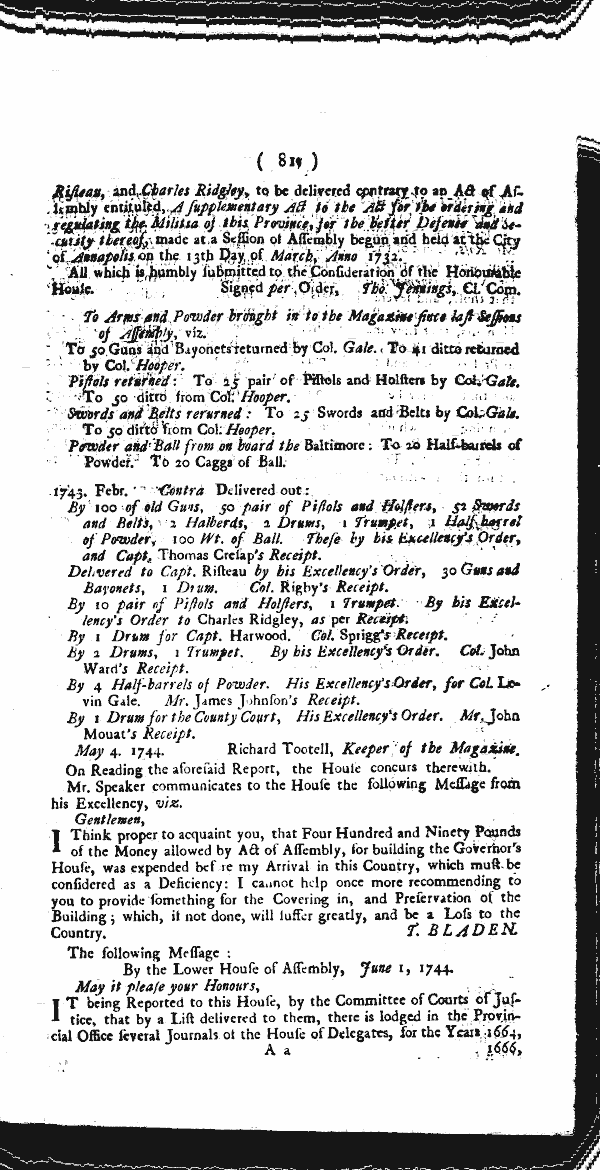 ( 819 )
Risteau, and Charles Ridgley, to be delivered contrary to an Act of As-
sembly entituled, A supplementary Act to the Act for the ordering and
regulating the Militia of this Province, for the better Defense and Se-
curity thereof, made at a Session of Assembly begun and held at the City
of Annapolis on the 13th Day of March, Anno 1732.
All which is humbly submitted to the Consideration of the Honourable
House. Signed per Order, Tho. Jennings, Cl. Com.
To Arms and Powder brought in to the Magazine since last Sessions
of Assembly, viz.
To 50 Guns and Bayonets returned by Col. Gale. To 41 ditto returned
by Col. Hooper.
Pistols returned: To 25 pair of Pistols and Holsters by Col. Gale.
To 50 ditto from Col. Hooper.
Swords and Belts rerurned: To 25 Swords and Belts by Col. Gale.
To 50 ditto from Col. Hooper.
Powder and Ball from on board the Baltimore: To 20 Half-barrels of
Powder. To 20 Caggs of Ball.
1743. Febr. Contra Delivered out:
By 100 of old Guns, 50 pair of Pistols and Holsters, 52 Swords
and Belts, 2 Halberds, 2 Drums, 1 Trumpet, 1 Half barrel
of Powder, 100 Wt. of Ball. These by his Excellency's Order,
and Capt. Thomas Cresap's Receipt.
Delivered to Capt. Risteau by his Excellency's Order, 30 Guns and
Bayonets, 1 Drum. Col. Rigby's Receipt.
By 10 pair of Pistols and Holsters, 1 Trumpet. By his Excel-
lency's Order to Charles Ridgley, as per Receipt.
By 1 Drum for Capt. Harwood. Col. Sprigg's Receipt.
By 2 Drums, 1 Trumpet. By his Excellency's Order. Col. John
Ward's Receipt.
By 4 Half-barrels of Powder. His Excellency's Order, for Col. Le-
vin Gale. Mr. James Johnson's Receipt.
By 1 Drum for the County Court, His Excellency's Order. Mr. John
Mouat's Receipt.
May 4. 1744. Richard Tootell, Keeper of the Magazine.
On Reading the aforesaid Report, the House concurs therewith.
Mr. Speaker communicates to the House the following Message from
his Excellency, viz.
Gentlemen,
I Think proper to acquaint you, that Four Hundred and Ninety Pounds
of the Money allowed by Act of Assembly, for building the Governor's
House, was expended before my Arrival in this Country, which must be
considered as a Deficiency: I cannot help once more recommending to
you to provide something for the Covering in, and Preservation of the
Building; which, if not done, will suffer greatly, and be a Loss to the
Country. T. BLADEN.
The following Message:
By the Lower House of Assembly, June 1, 1744.
May it please your Honours,
IT being Reported to this House, by the Committee of Courts of Jus-
tice, that by a List delivered to them, there is lodged in the Provin-
cial Office several Journals of the House of Delegates, for the Years 1664,
A a 1666,